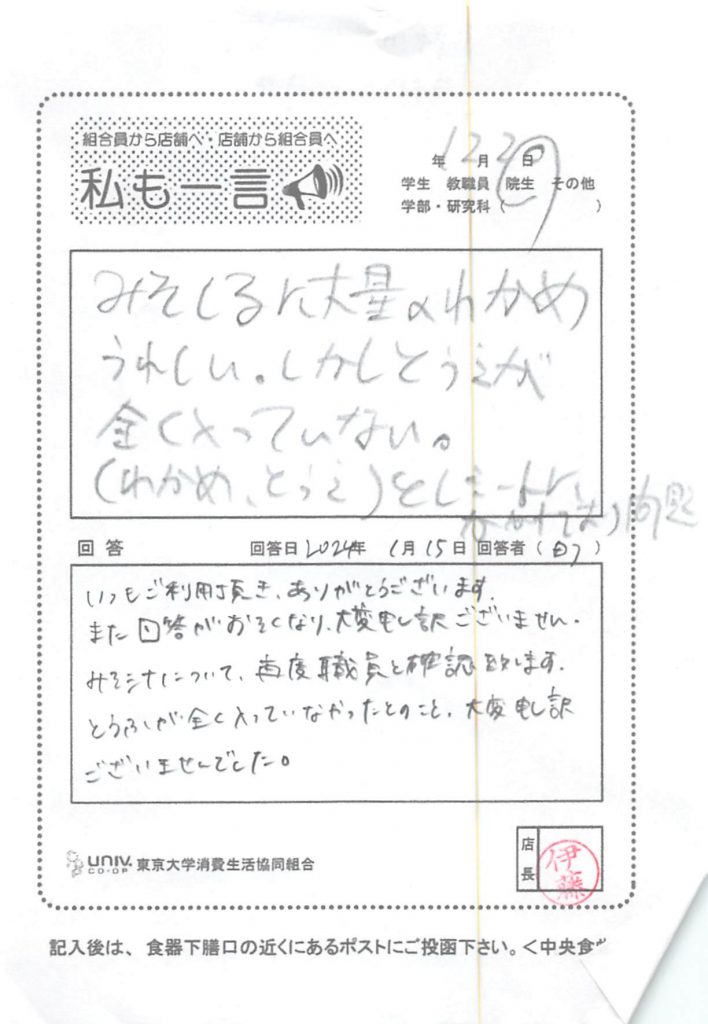 組合員から店舗へ・店舗から組合員へ
私も一言
年 12月 20日
学生 教職員 院生 その他
学部・研究科（ ）
みそしるに大量のわかめ
うれしい。しかしとうふが
全く入っていない。
(わかめ、とうふ)を
問題
回答 回答日2024年 1月15日 回答者（ ）
いつもご利用頂き、ありがとうございます。
また回答がおそくなり、大変申し訳ございません。
みそ汁について、再度職員と確認致します。
とうふが全く入っていなかったとのこと、大変申し訳
ございませんでした。
UNIV. CO-OP 東京大学消費生活協同組合
店長 伊藤
記入後は、食器下膳口の近くにあるポストにご投函下さい。＜中央食